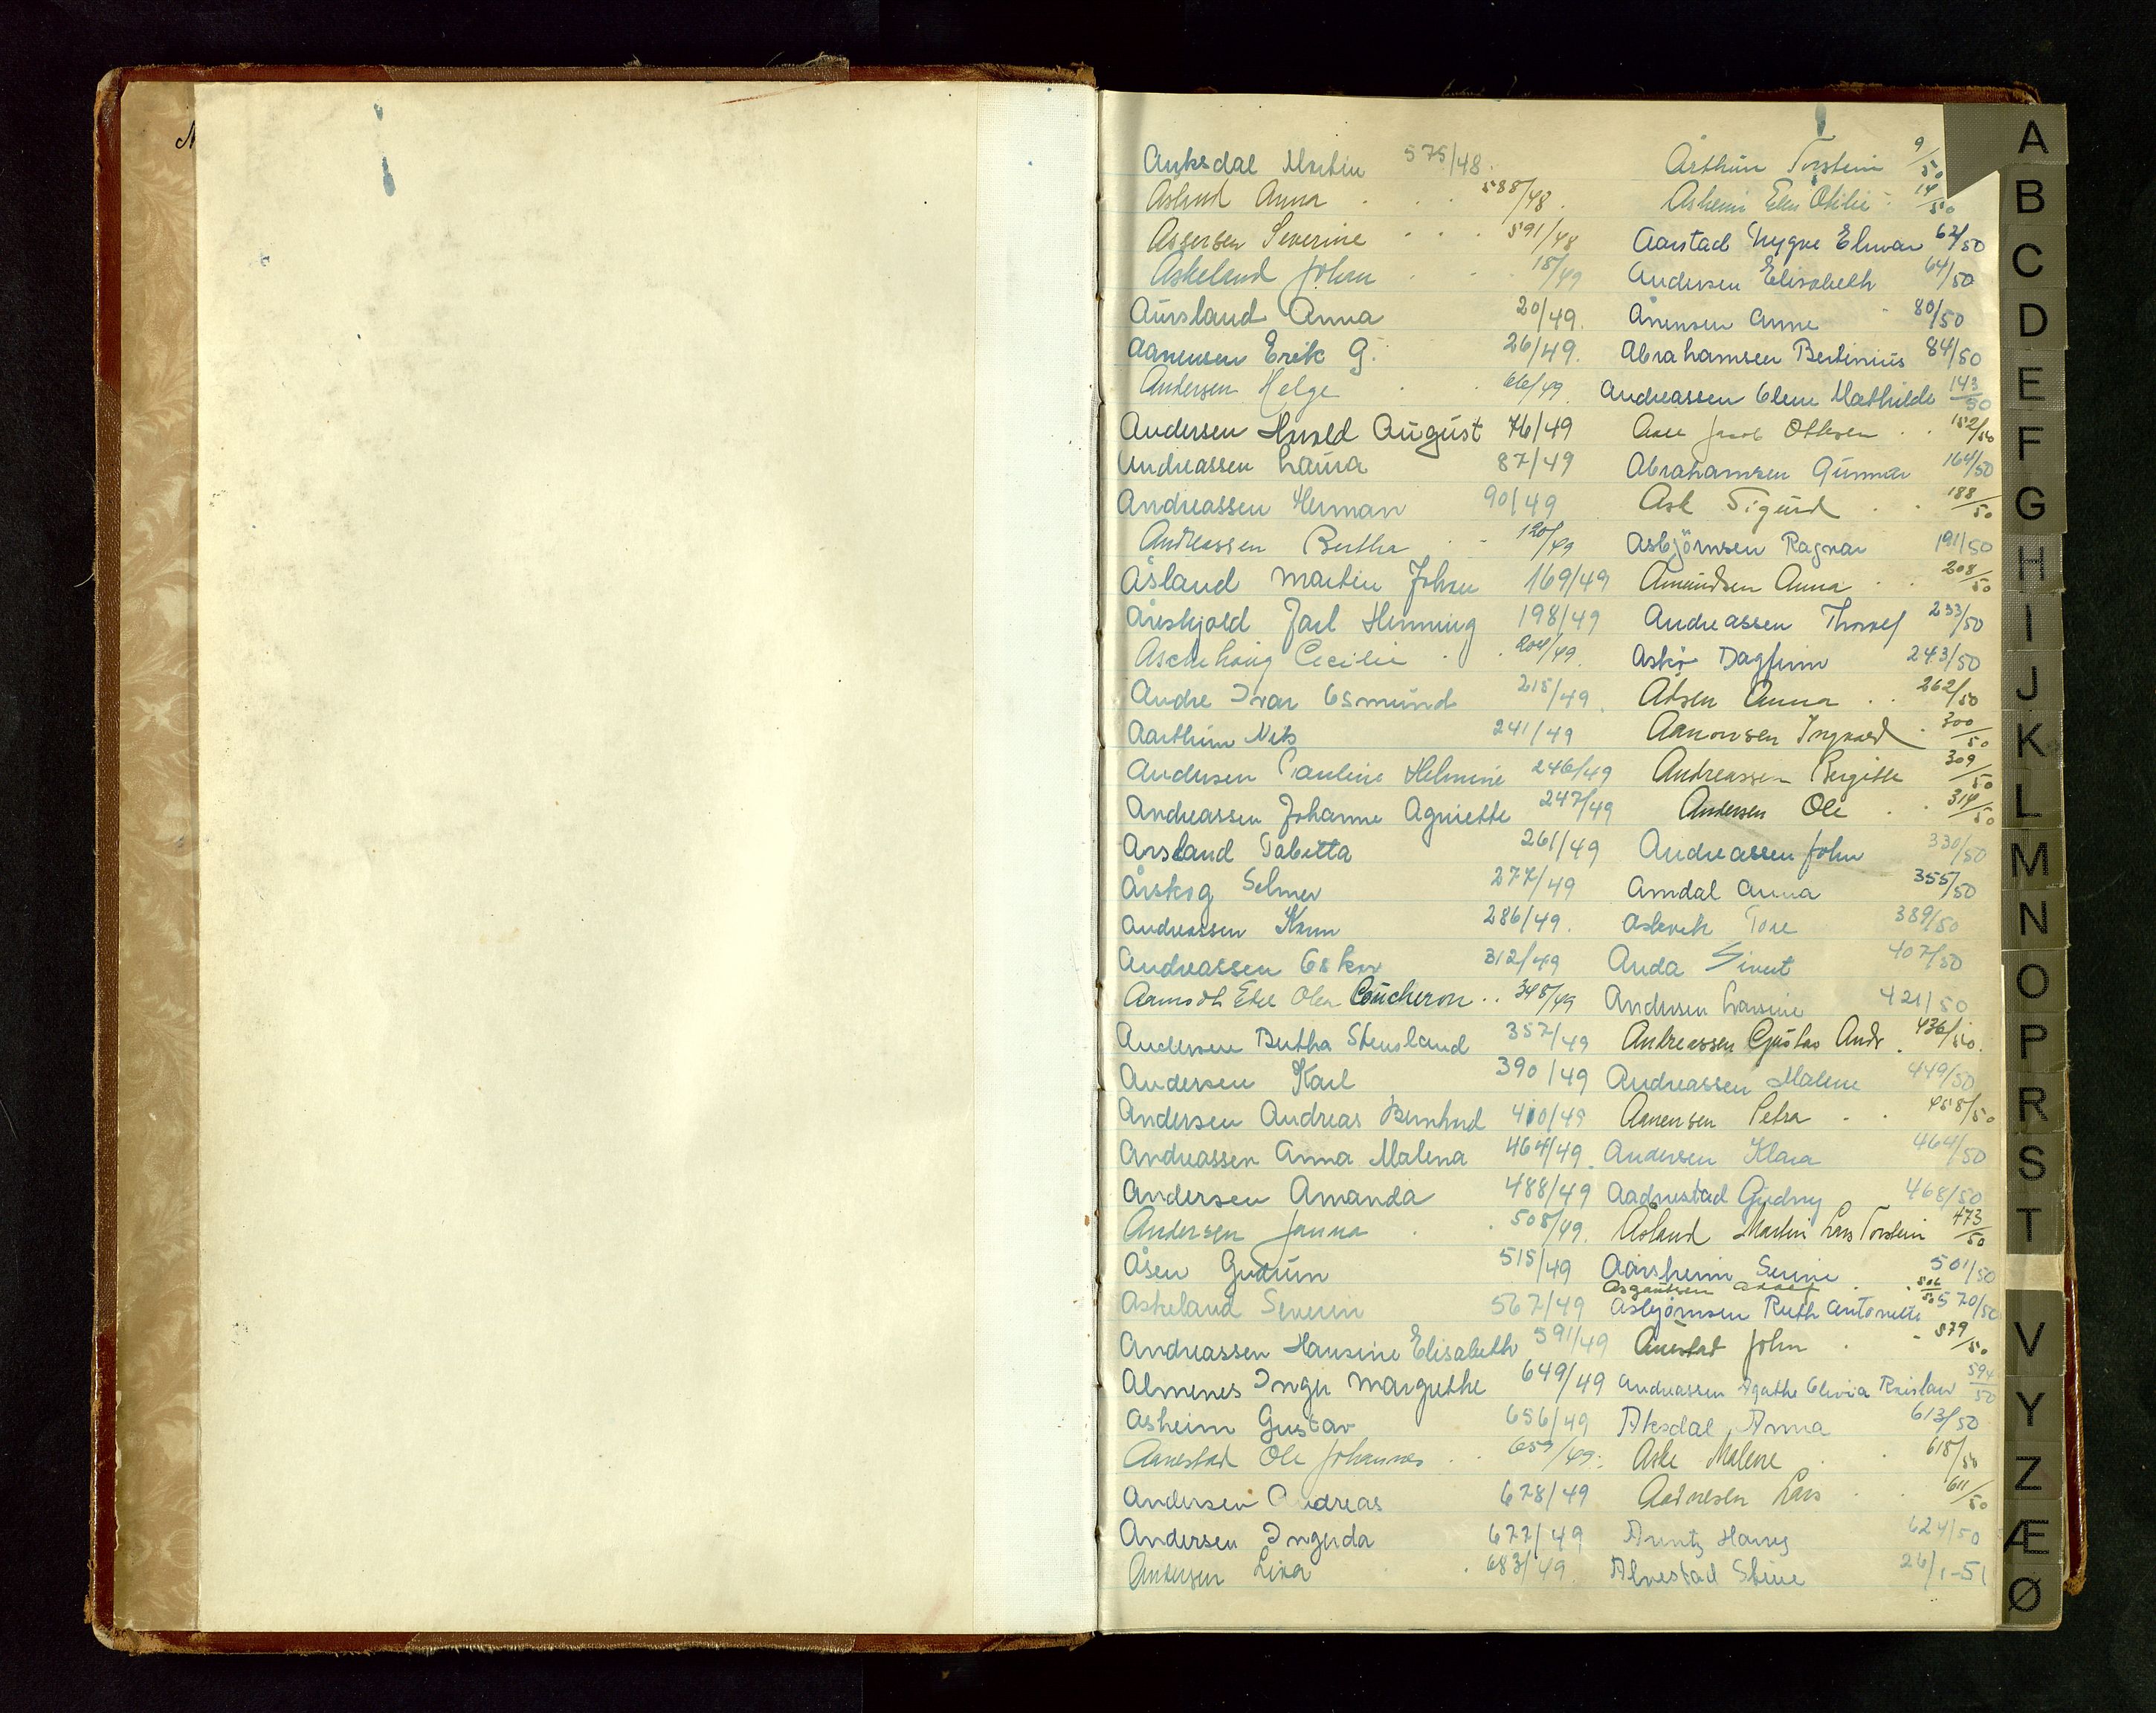 Auksdal Martin 575/48
Åsland Anna 588/48
Assersen Severine 591/48
Askeland Johan 15/49
Aursland Anna 20/49
Aanensen Erik G. 26/49
Andersen Helge 66/49
Andersen Harald August 76/49
Andreassen Laura 87/49
Andreassen Herman 90/49
Andreassen Bertha 120/49
Åsland Martin Johan 169/49
Jarl Henning 198/49
Aschehoug Cecilie 204/49
Andre Ivar Osmund 215/49
Aarthun Nils 241/49
Andersen Pauline Helmine 246/49
Andreassen Johanne Agniette 247/49
Arsland Tabitta 261/49
Årskog Selmer 277/49
Andreassen Karen 286/49
Andreassen Oskar 312/49
Olea Coucheron 348/49
Andersen Bertha Stensland 357/49
Andersen Karl 390/49
Andersen Andreas Bernhard 410/49
Andreassen Anna Malena 464/49
Andersen Amanda 488/49
Andersen Janna 508/49
Åsen Gudrun 515/49
Askeland Severin 567/49
Andreassen Hansine Elisabeth 591/49
Almenes Inger Margrethe 649/49
Asheim Gustav 656/49
Aanestad Ole Johannes 659/49
Andersen Andreas 678/49
Andersen Ingerda 677/49
Andersen Lina 683/49
Årthun Torstein 9/50
Asheim Otilie 14/50
Aarstad Trygve 62/50
Andersen Elisabeth 64/50
Ånensen Anne 80/50
Abrahamsen Bertinius 84/50
Andreassen Olene Mathilde 143/50
Jacob 152/50
Abrahamsen Gunnar 164/50
Ask Sigurd 188/50
Asbjörnsen Ragnar 191/50
Amundsen Anna 208/50
Andreassen Thorolf 233/50
Askø Dagfinn 243/50
Anna 262/50
Aanonsen Ingvald 300/50
Andreassen Bergitte 309/50
Andersen Ole 314/50
Andreassen John 330/50
Amdal Anna 355/50
Askvik Tore 389/50
Anda Sivert 407/50
Andersen Larsine 421/50
Andreassen Gustav Andr. 436/50
Andreassen Malene 449/50
Aanensen Petra 458/50
Andersen Klara 464/50
Aadnestad Gudny 468/50
Åsland Martin Lars Torstein 473/50
Aarsheim Serine 501/50
Asgautsen 506/50
Asbjørnsen Ruth Antonette 570/50
Auestad John 579/50
Andreassen Agathe Olivia 594/50
Aksdal Anna 613/50
Aske Malene 618/50
Aadnesen Lars 611/50
Arntz Harry 624/50
Alvestad Stine 26/1-51
A
B
C
D
E
F
G
H
I
J
K
L
M
N
O
P
R
S
T
V
Y
Z
Æ
Ø